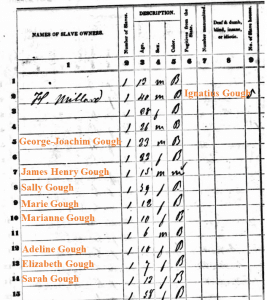 NAMES OF SLAVE OWNERS. Number of Slaves. DESCRIPTION. Age. Sex. Color. Fugitives from the State. Number manumitted. Deaf & dumb, blind, insane, or idiotic. No. of Slave houses.
1 2 3 4 5 6 7 8 9
1 1 13 m B
2 H. Millard 1 40 m B Ignatius Gough
3 1 f B
4 1 26 m B
5 George-Joachim Gough 1 23 m B
6 1 22 f B
7 James Henry Gough 1 15 m m
8 Sally Gough 1 59 f B
9 Marie Gough 1 12 f B
10 Marianne Gough 1 10 f B
11 1 6 m B
12 Adeline Gough 1 10 f B
13 Elizabeth Gough 1 7 f B
14 Sarah Gough 1 13 f B
15 1 38 f B